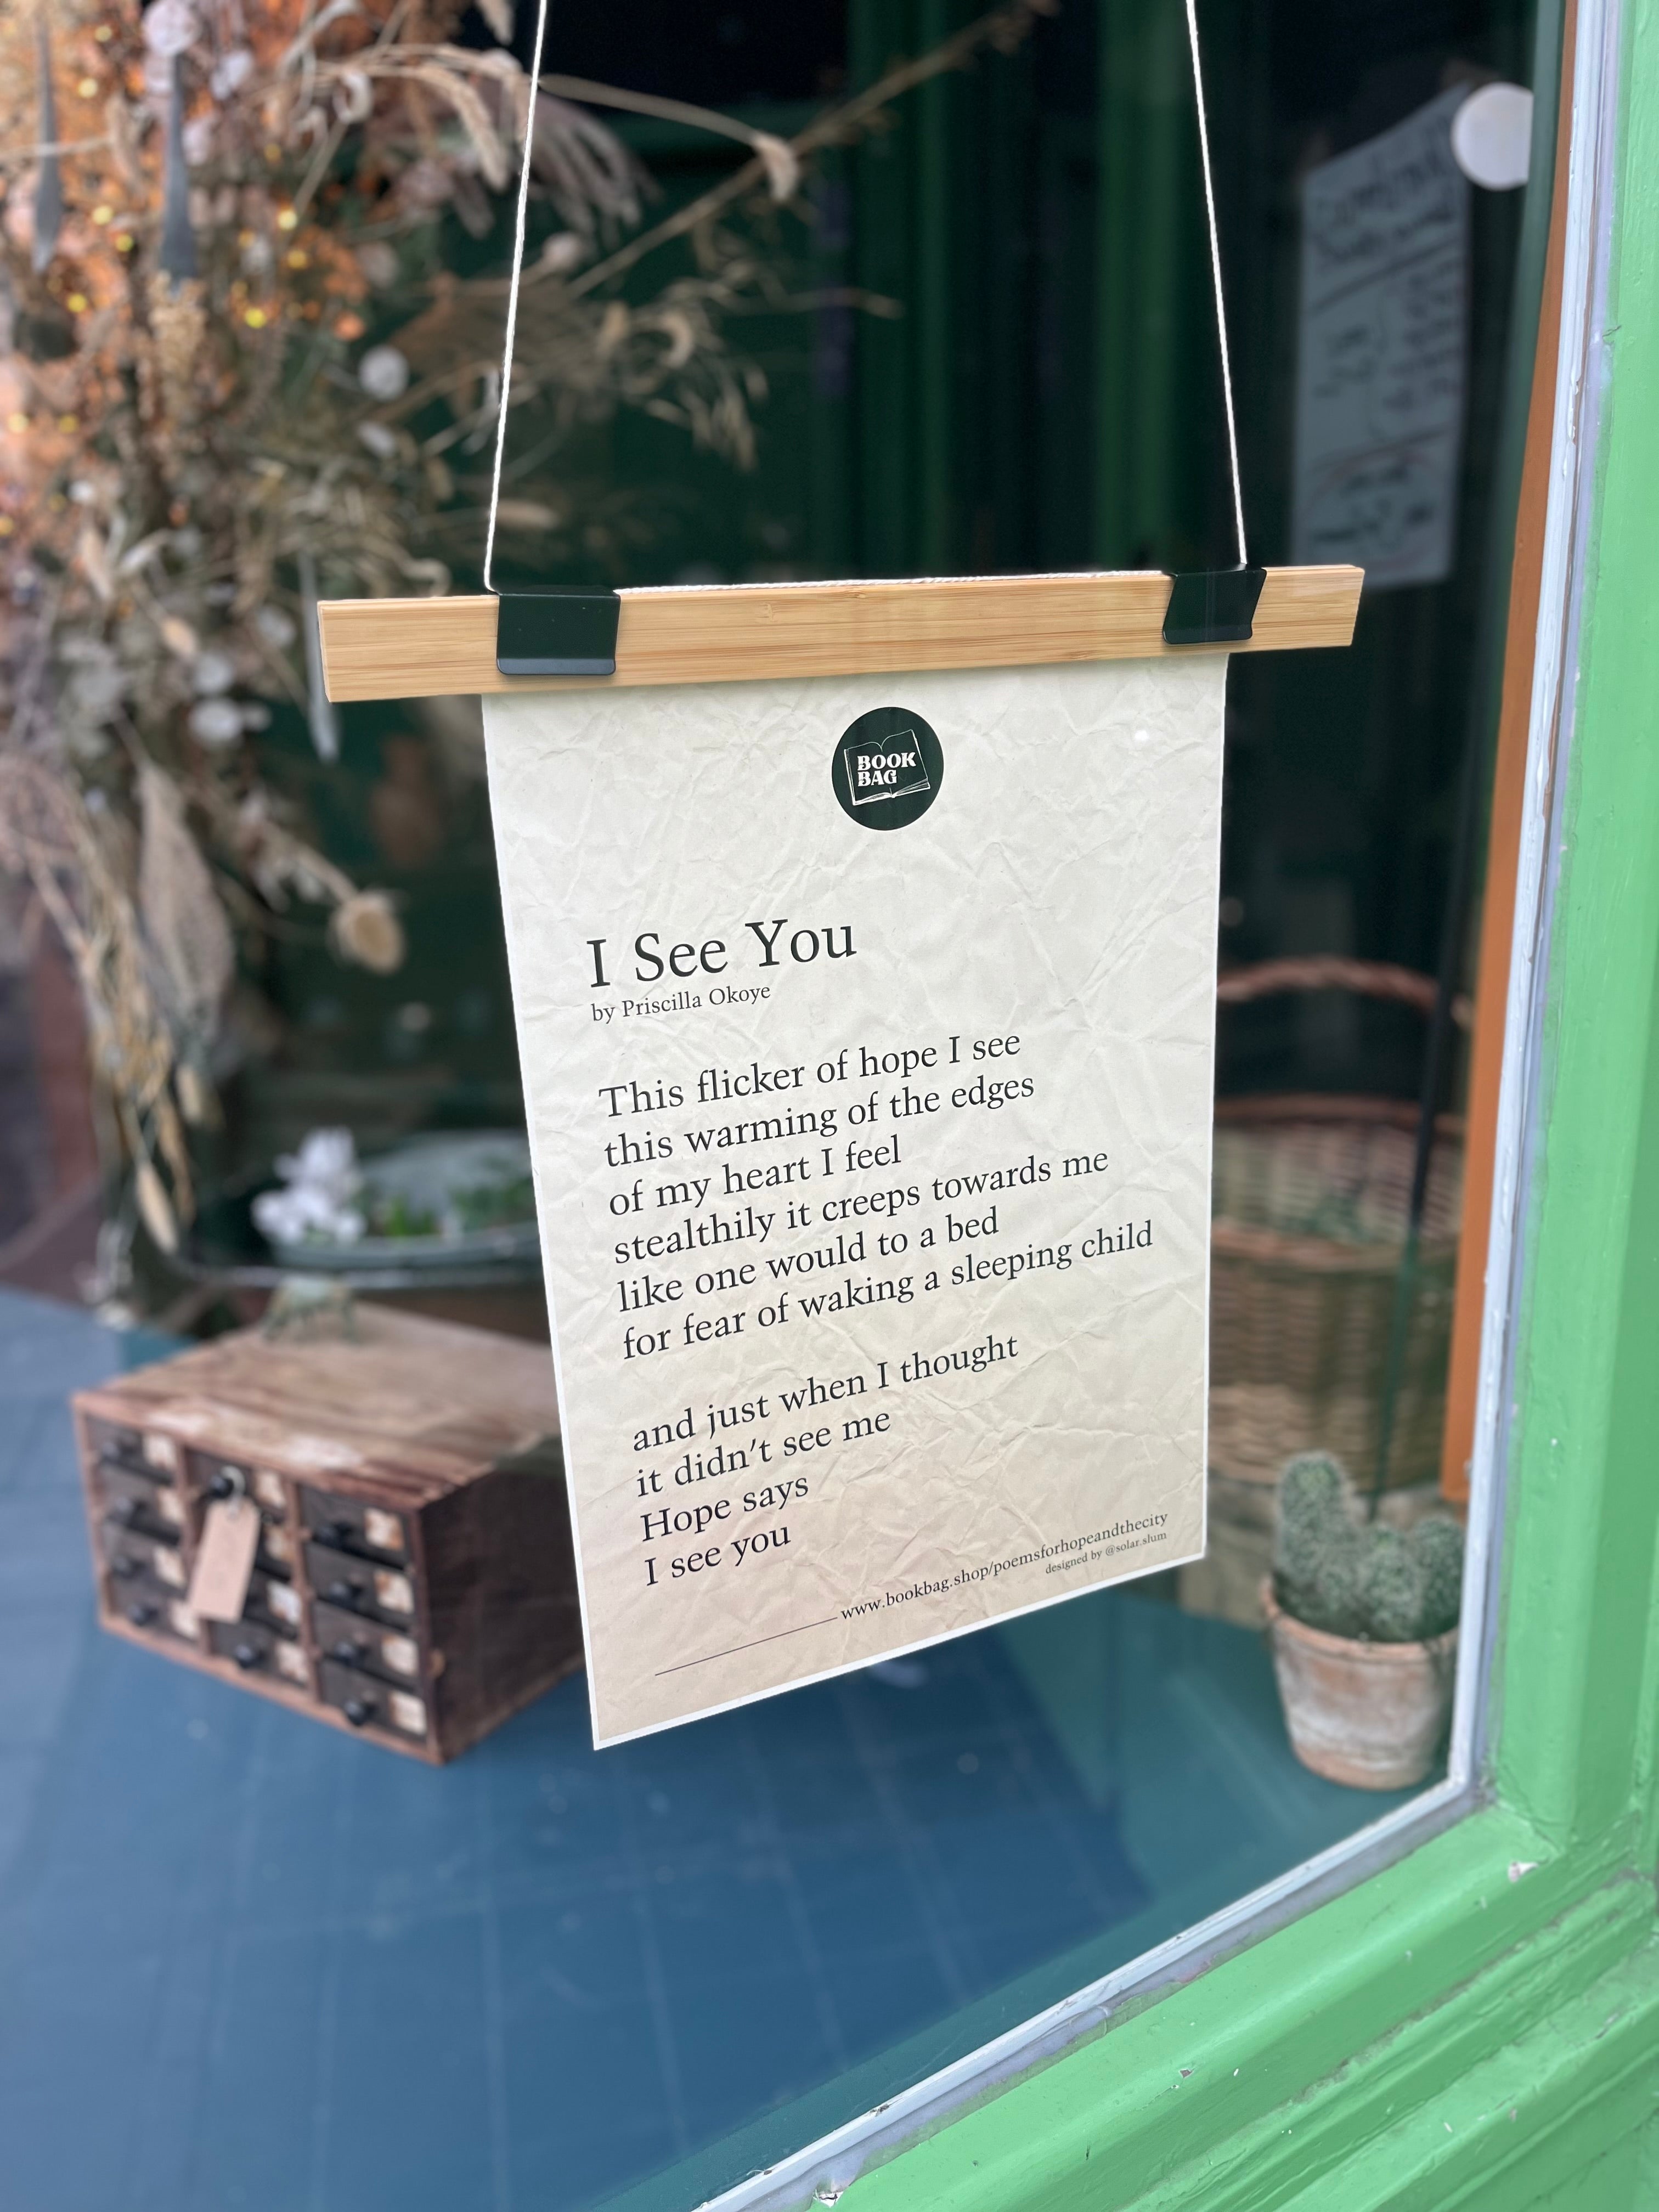 BOOK
BAG
I See You
by Priscilla Okoye
This flicker of hope I see
this warming of the edges
of my heart I feel
stealthily it creeps towards me
like one would to a bed
for fear of waking a sleeping child
and just when I thought
it didn't see me
Hope says
I see you
www.bookbag.shop/poemsforhopeandthecity
designed by @solar.slum